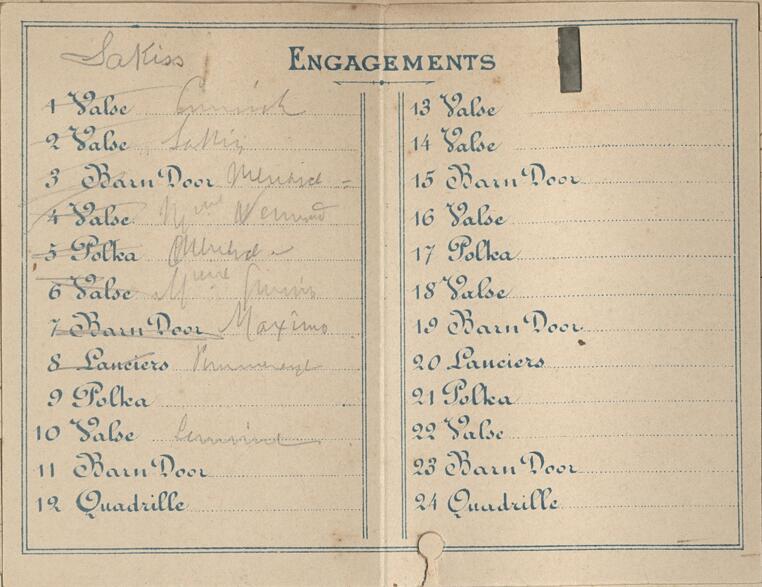 Sakiss
ENGAGEMENTS
1 Valse
2 Valse
3 Barn Door
4 Valse
5 Polka
6 Valse
7 Barn Door Maxîmo
8 Lanciers
9 Polka
10 Valse
11 Barn Door
12 Quadrille
13 Valse
14 Valse
15 Barn Door
16 Valse
17 Polka
18 Valse
19 Barn Door
20 Lanciers
21 Polka
22 Valse
23 Barn Door
24 Quadrille